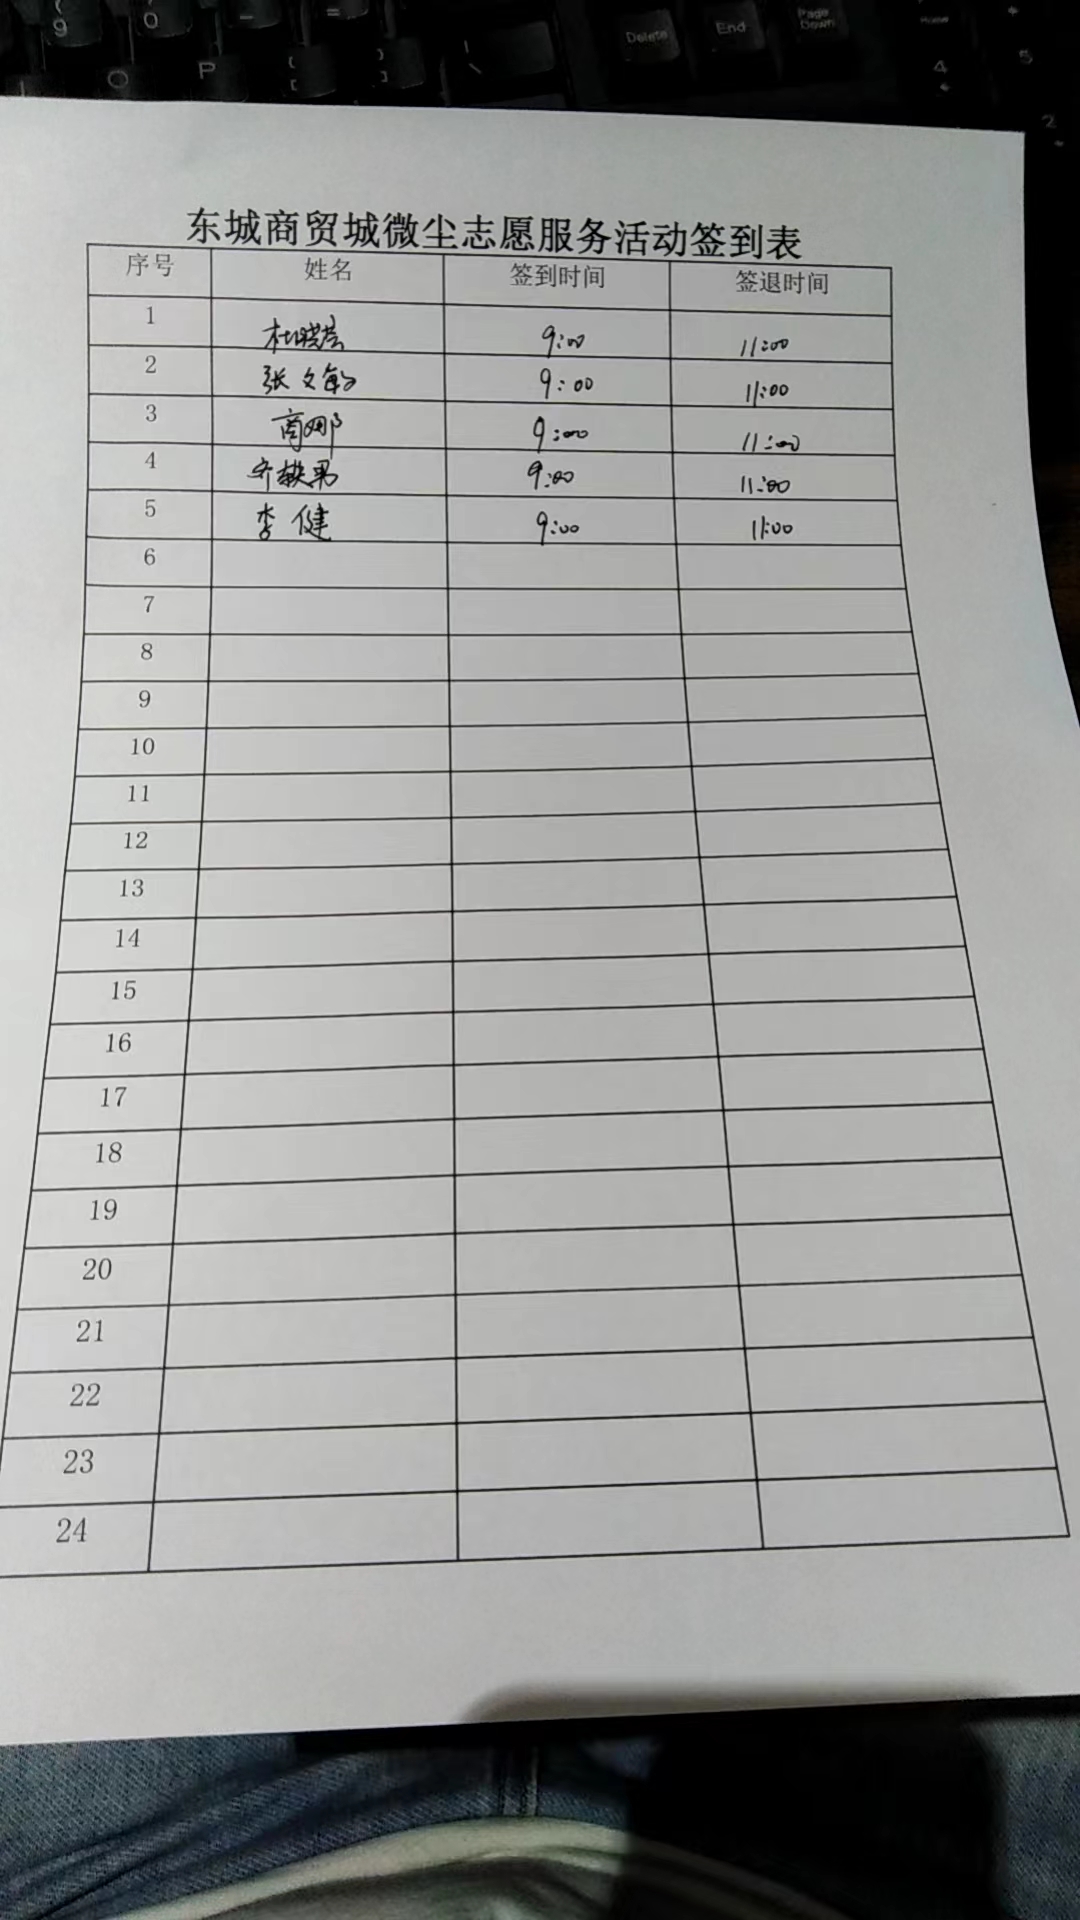 9 0 - =
O P [ ] \ Delete End Page Down Home 4 5 2
东城商贸城微尘志愿服务活动签到表
序号 姓名 签到时间 签退时间
1 杜晓芸 9:00 11:00
2 张文敏 9:00 11:00
3 商娜 9:00 11:00
4 齐 男 9:00 11:00
5 李健 9:00 11:00
6
7
8
9
10
11
12
13
14
15
16
17
18
19
20
21
22
23
24